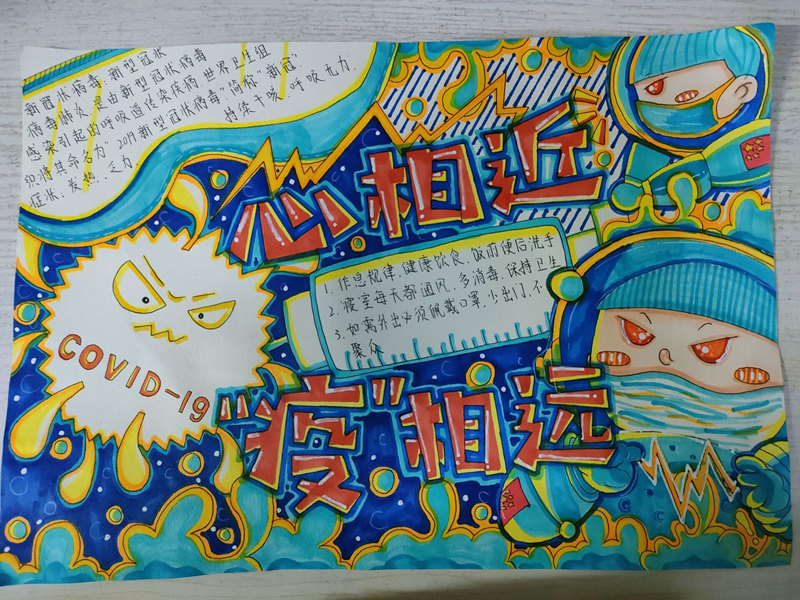 新冠状病毒:新型冠状
病毒肺炎是由新型冠状病毒
感染引起的呼吸道传染疾病 世界卫生组
织将其命名为"2019新型冠状病毒"简称"新冠"
症状:发热.乏力 持续干咳.呼吸无力.
心相近
1. 作息规律.健康饮食.饭前便后洗手
2. 寝室每天都通风.多消毒.保持卫生
3. 如需外出必须佩戴口罩.少出门.不
聚众
COVID-19
"疫"相远